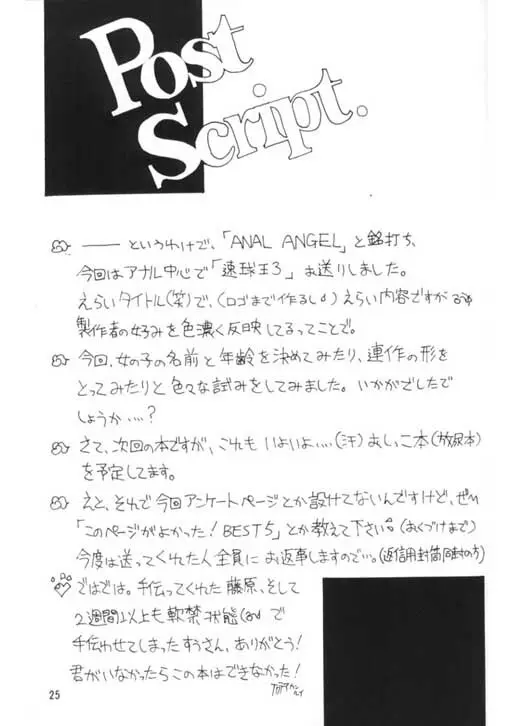 Post
Script.
── というわけで、「ANAL ANGEL」と銘打ち、
今回はアナル中心で「速球王3」お送りしました。
えらいタイトル(笑)で、(ロゴまで作るし) えらい内容ですが
製作者の好みを色濃く反映してるってことで。
今回、女の子の名前と年齢を決めてみたり、連作の形を
とってみたりと色々な試みをしてみました。いかがでしたで
しょうか‥‥?
さて、次回の本ですが、これも いよいよ‥‥(汗) おしっこ本(放尿本)
を予定してます。
えと、それで今回アンケートページとか設けてないんですけど、ぜひ
「このページがよかった! BEST5」とか教えて下さい。(おくづけまで)
今度は送ってくれた人全員に お返事しますので‥。(返信用封筒同封の方)
ではでは。手伝ってくれた 藤原、そして
2週間以上も軟禁状態 で
手伝わせてしまった すうさん、ありがとう!
君がいなかったらこの本はできなかった!
25